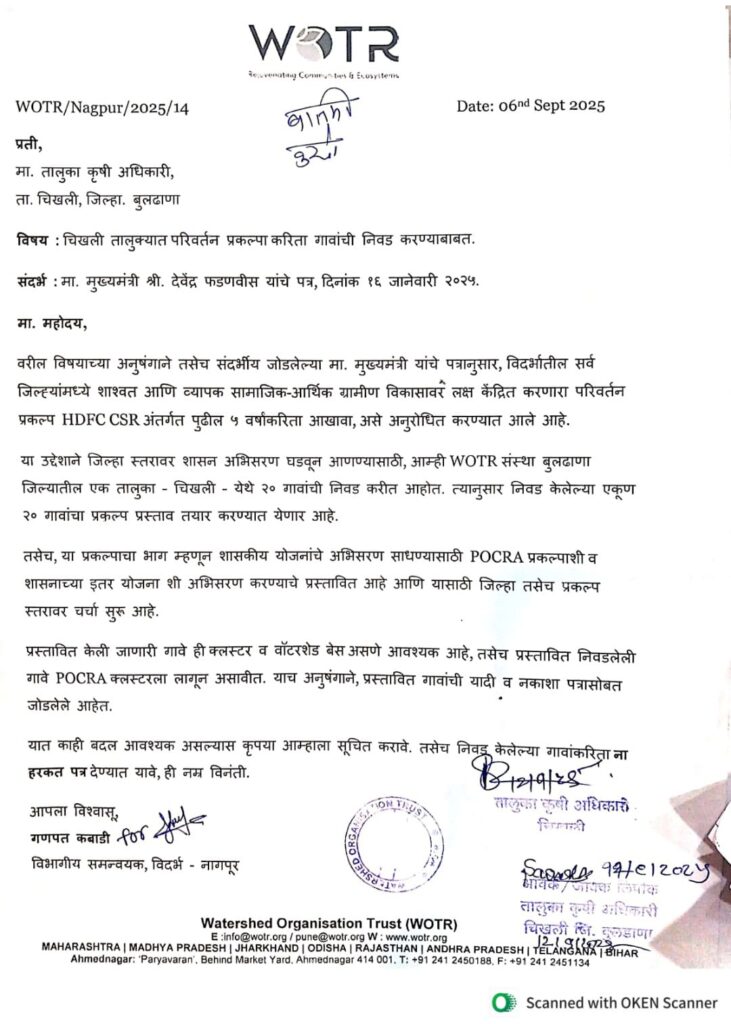 WOTR
Rejuvenating Communities & Ecosystems
WOTR/Nagpur/2025/14
Date: 06nd Sept 2025
प्रती,
मा. तालुका कृषी अधिकारी,
ता. चिखली, जिल्हा. बुलढाणा
विषय : चिखली तालुक्यात परिवर्तन प्रकल्पा करिता गावांची निवड करण्याबाबत.
संदर्भ : मा. मुख्यमंत्री श्री. देवेंद्र फडणवीस यांचे पत्र, दिनांक १६ जानेवारी २०२५.
मा. महोदय,
वरील विषयाच्या अनुषंगाने तसेच संदर्भीय जोडलेल्या मा. मुख्यमंत्री यांचे पत्रानुसार, विदर्भातील सर्व
जिल्ह्यांमध्ये शाश्वत आणि व्यापक सामाजिक-आर्थिक ग्रामीण विकासावर लक्ष केंद्रित करणारा परिवर्तन
प्रकल्प HDFC CSR अंतर्गत पुढील ५ वर्षांकरिता आखावा, असे अनुरोधित करण्यात आले आहे.
या उद्देशाने जिल्हा स्तरावर शासन अभिसरण घडवून आणण्यासाठी, आम्ही WOTR संस्था बुलढाणा
जिल्यातील एक तालुका - चिखली - येथे २० गावांची निवड करीत आहोत. त्यानुसार निवड केलेल्या एकूण
२० गावांचा प्रकल्प प्रस्ताव तयार करण्यात येणार आहे.
तसेच, या प्रकल्पाचा भाग म्हणून शासकीय योजनांचे अभिसरण साधण्यासाठी POCRA प्रकल्पाशी व
शासनाच्या इतर योजना शी अभिसरण करण्याचे प्रस्तावित आहे आणि यासाठी जिल्हा तसेच प्रकल्प
स्तरावर चर्चा सुरू आहे.
प्रस्तावित केली जाणारी गावे ही क्लस्टर व वॉटरशेड बेस असणे आवश्यक आहे, तसेच प्रस्तावित निवडलेली
गावे POCRA क्लस्टरला लागून असावीत. याच अनुषंगाने, प्रस्तावित गावांची यादी व नकाशा पत्रासोबत
जोडलेले आहेत.
यात काही बदल आवश्यक असल्यास कृपया आम्हाला सूचित करावे. तसेच निवड केलेल्या गावांकरिता ना
हरकत पत्र देण्यात यावे, ही नम्र विनंती.
आपला विश्वासू,
गणपत कबाडी for
विभागीय समन्वयक, विदर्भ - नागपूर
12/9/25
तालुका कृषी अधिकारी
चिखली
तालुका कृषी अधिकारी
चिखली जि. बुलडाणा
Watershed Organisation Trust (WOTR)
E :info@wotr.org / pune@wotr.org W : www.wotr.org
MAHARASHTRA | MADHYA PRADESH | JHARKHAND | ODISHA | RAJASTHAN | ANDHRA PRADESH | TELANGANA | BIHAR
Ahmednagar: 'Paryavaran', Behind Market Yard, Ahmednagar 414 001. T: +91 241 2450188, F: +91 241 2451134
Scanned with OKEN Scanner